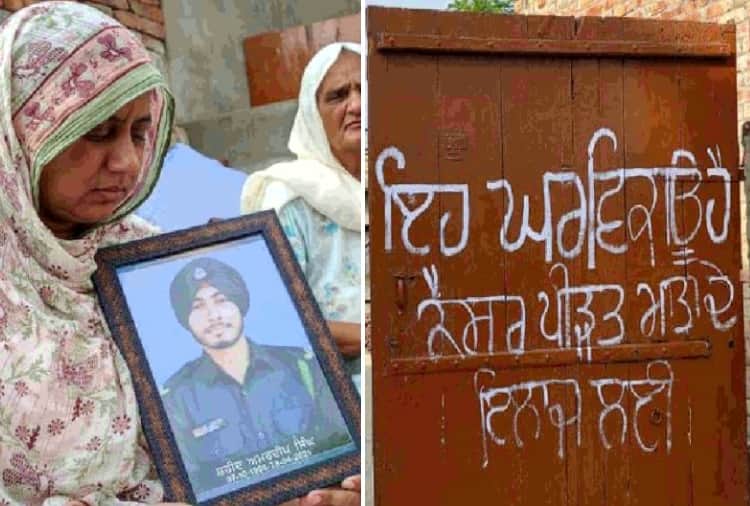 ਸ਼ਹੀਦ ਅਮਰਦੀਪ ਸਿੰਘ
ਇਹ ਘਰ ਵਿਕਾਊ ਹੈ
ਕੈਂਸਰ ਪੀੜਤ ਦੇ
ਇਲਾਜ ਲਈ